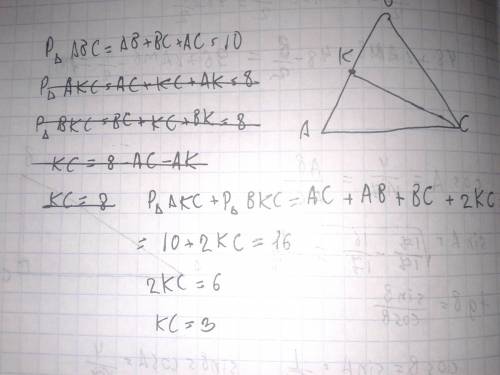 P△ ABC = AB + BC + AC = 10
P△ AKC = AC + KC + AK = 8
P△ BKC = BC + KC + BK = 8
KC = 8 - AC - AK
KC = 8 P△ AKC + P△ BKC = AC + AB + BC + 2KC
= 10 + 2KC = 16
2KC = 6
KC = 3
K
A
C